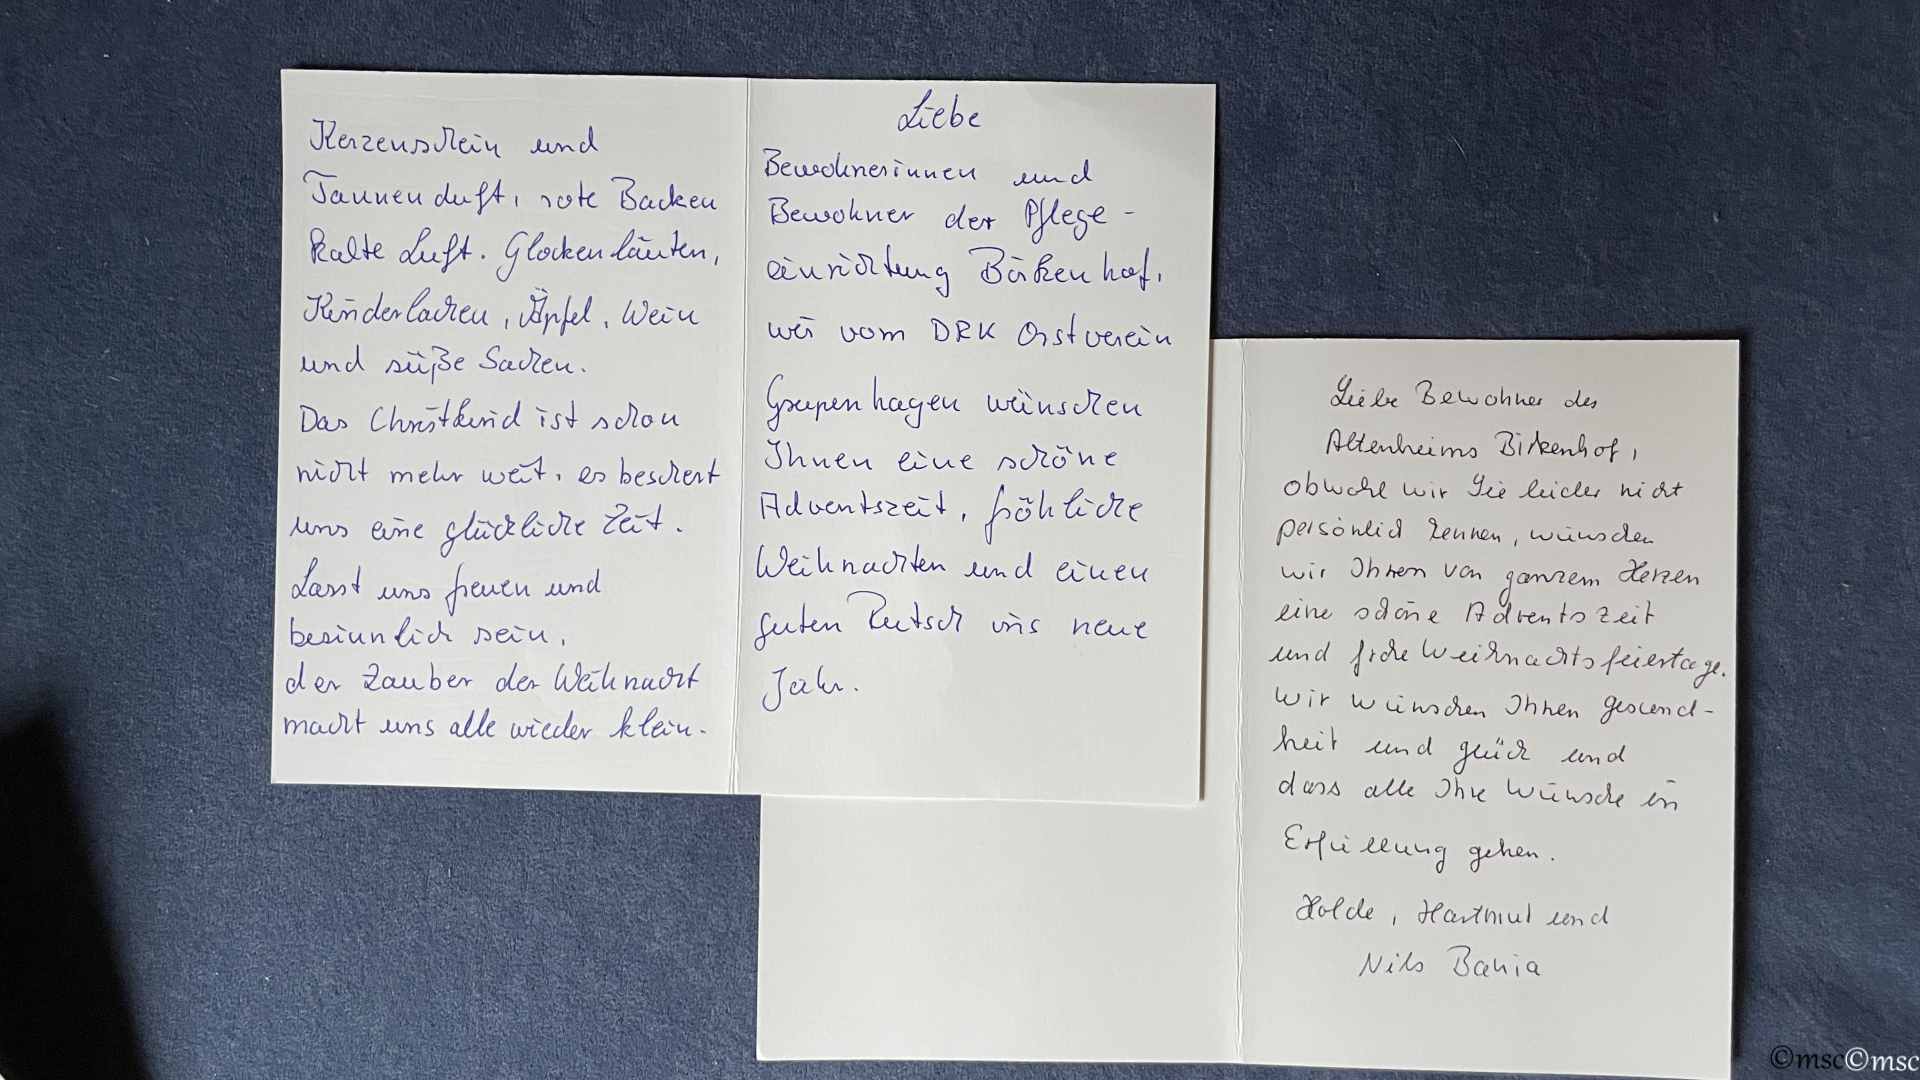 Kerzenschein und
Tannenduft, rote Backen
kalte Luft. Glockenläuten,
Kinderlachen, Äpfel, Wein
und süße Sachen.
Das Christkind ist schon
nicht mehr weit, es beschert
uns eine glückliche Zeit.
Lasst uns freuen und
besinnlich sein,
der Zauber der Weihnacht
macht uns alle wieder klein.
Liebe
Bewohnerinnen und
Bewohner der Pflege-
einrichtung Birkenhof,
wir vom DRK Ortsverein
Grupenhagen wünschen
Ihnen eine schöne
Adventszeit, fröhliche
Weihnachten und einen
guten Rutsch ins neue
Jahr.
Liebe Bewohner des
Altenheims Birkenhof,
obwohl wir Sie leider nicht
persönlich kennen, wünschen
wir Ihnen von ganzem Herzen
eine schöne Adventszeit
und frohe Weihnachtsfeiertage.
Wir wünschen Ihnen Gesund-
heit und Glück und
dass alle Ihre Wünsche in
Erfüllung gehen.
Holde, Hartmut und
Nils
©msc©msc